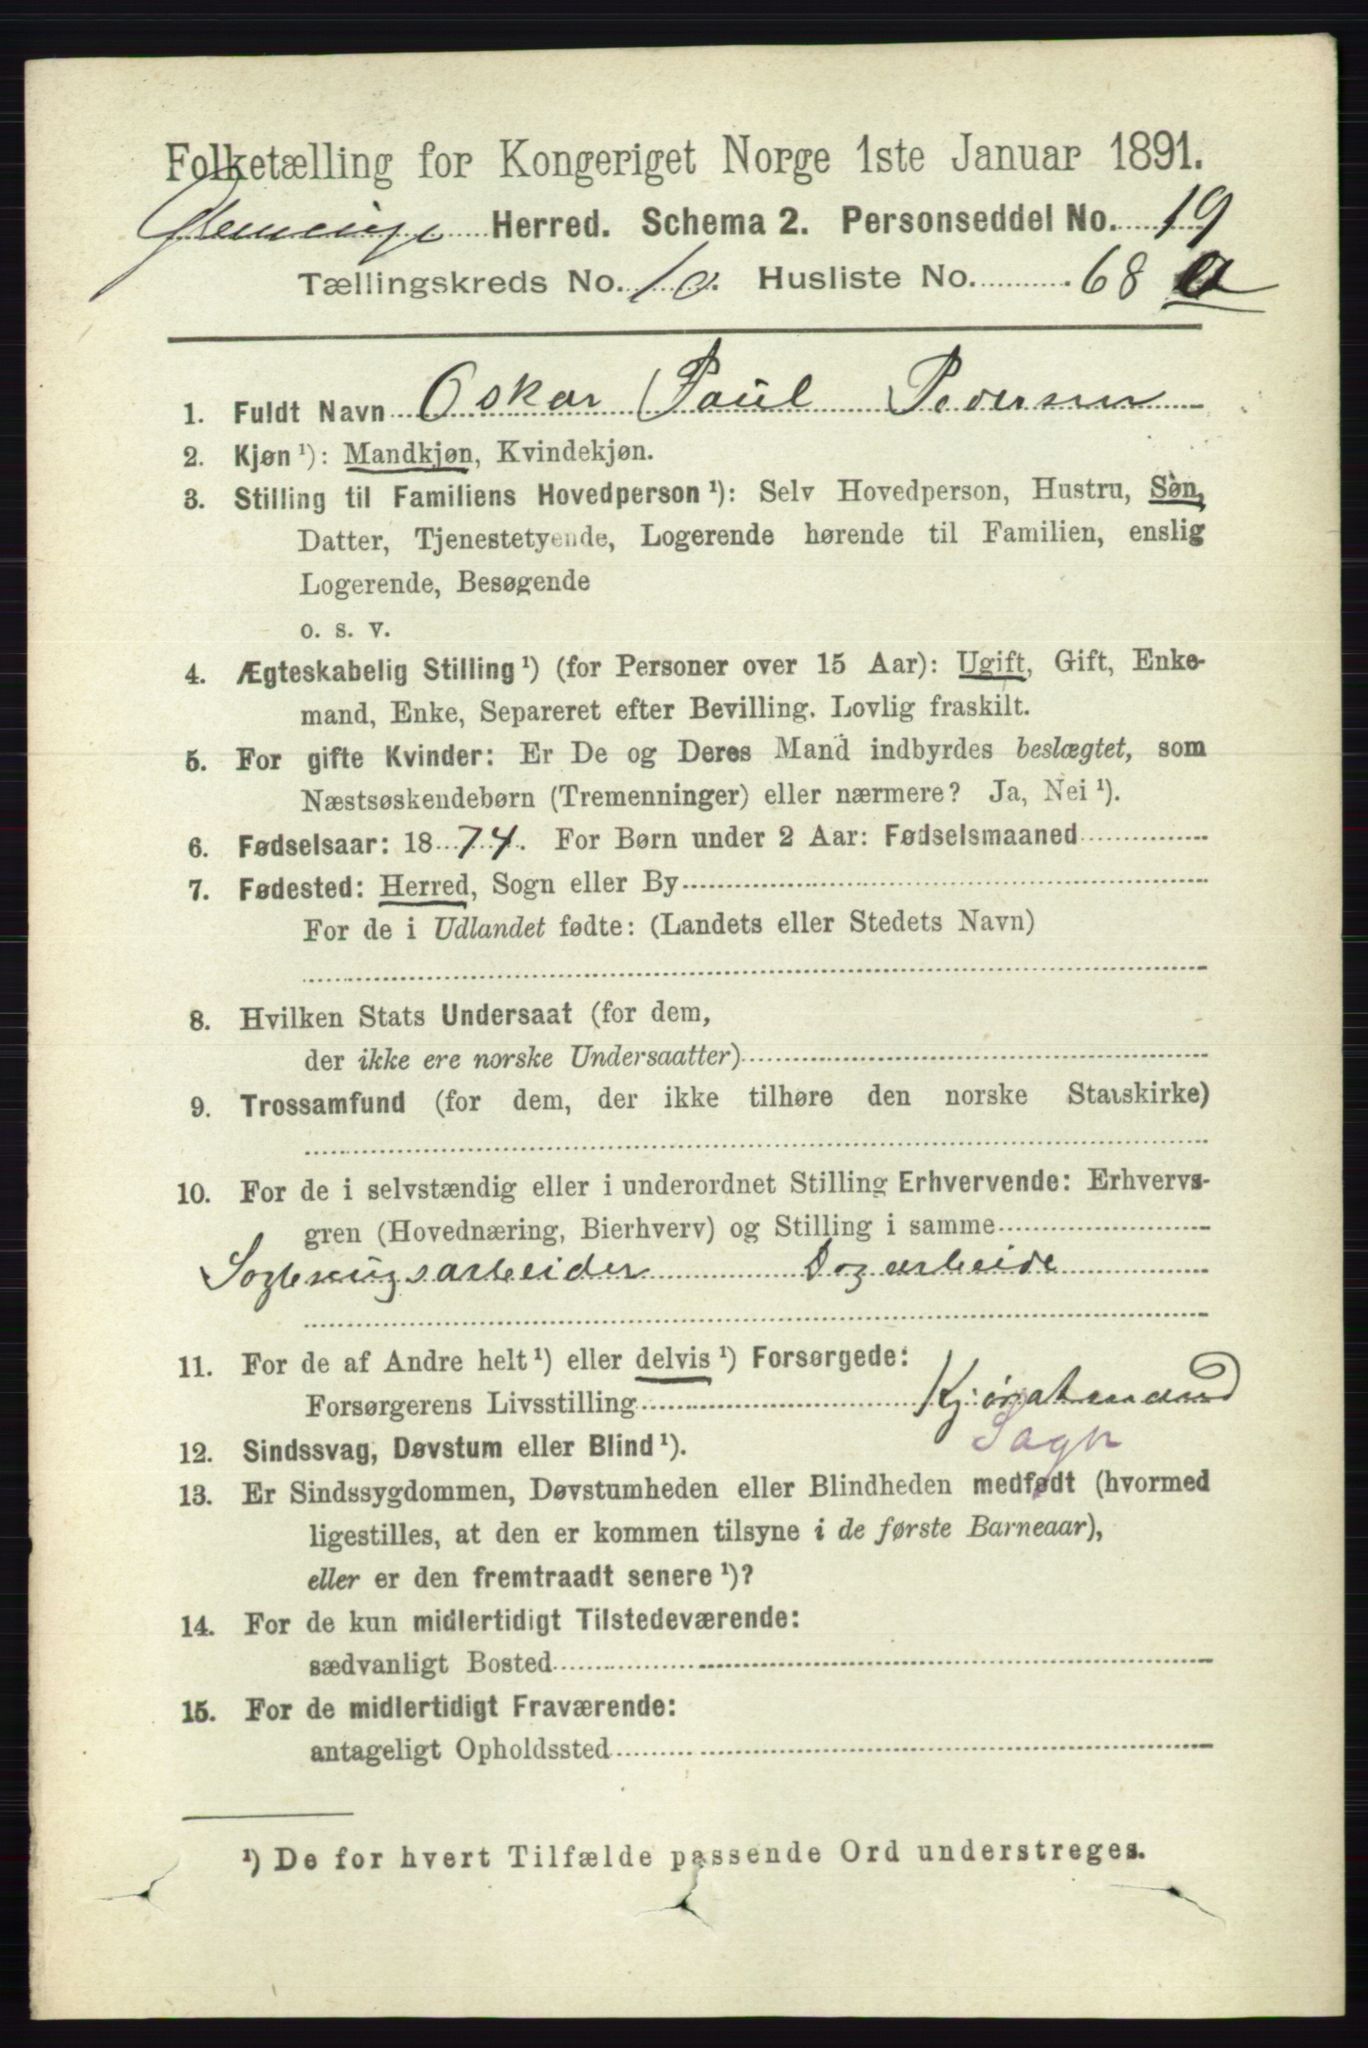 Folketælling for Kongeriget Norge 1ste Januar 1891.
Glemminge Herred. Schema 2. Personseddel No. 19
Tællingskreds No. 10. Husliste No. 68 a
1. Fuldt Navn Oskar Paul Pedersen
2. Kjøn ¹): Mandkjøn, Kvindekjøn.
3. Stilling til Familiens Hovedperson ¹): Selv Hovedperson, Hustru, Søn,
Datter, Tjenestetyende, Logerende hørende til Familien, enslig
Logerende, Besøgende
o. s. v.
4. Ægteskabelig Stilling ¹) (for Personer over 15 Aar): Ugift, Gift, Enke-
mand, Enke, Separeret efter Bevilling. Lovlig fraskilt.
5. For gifte Kvinder: Er De og Deres Mand indbyrdes beslægtet, som
Næstsøskendebørn (Tremenninger) eller nærmere? Ja, Nei ¹).
6. Fødselsaar: 1874. For Børn under 2 Aar: Fødselsmaaned
7. Fødested: Herred, Sogn eller By
For de i Udlandet fødte: (Landets eller Stedets Navn)
8. Hvilken Stats Undersaat (for dem,
der ikke ere norske Undersaatter)
9. Trossamfund (for dem, der ikke tilhøre den norske Statskirke)
10. For de i selvstændig eller i underordnet Stilling Erhvervende: Erhvervs-
gren (Hovednæring, Bierhverv) og Stilling i samme
Dagarbeide
11. For de af Andre helt ¹) eller delvis ¹) Forsørgede:
Forsørgerens Livsstilling Kjøratmand
Sagbr
12. Sindssvag, Døvstum eller Blind ¹).
13. Er Sindssygdommen, Døvstumheden eller Blindheden medfødt (hvormed
ligestilles, at den er kommen tilsyne i de første Barneaar),
eller er den fremtraadt senere ¹)?
14. For de kun midlertidigt Tilstedeværende:
sædvanligt Bosted
15. For de midlertidigt Fraværende:
antageligt Opholdssted
¹) De for hvert Tilfælde passende Ord understreges.